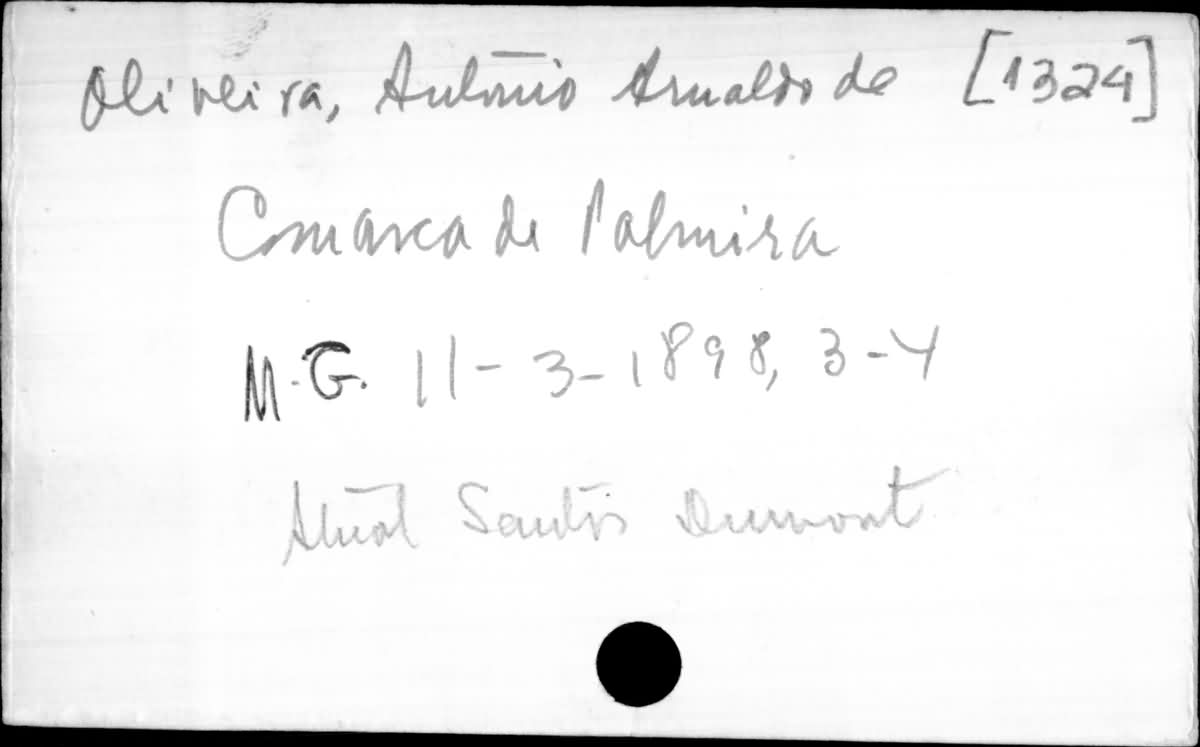 Oliveira, Antonio Arnaldo de [1324]
Comarca de Palmira
M.G. 11-3-1898, 3-4
Atual Santos Dumont